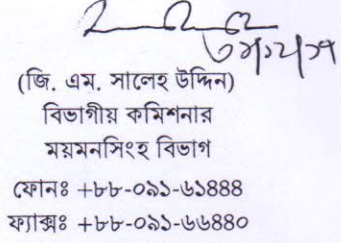 (জি. এম. সালেহ উদ্দিন)
বিভাগীয় কমিশনার
ময়মনসিংহ বিভাগ
ফোনঃ +৮৮-০৯১-৬১৪৪৪
ফ্যাক্সঃ +৮৮-০৯১-৬৬৪৪০